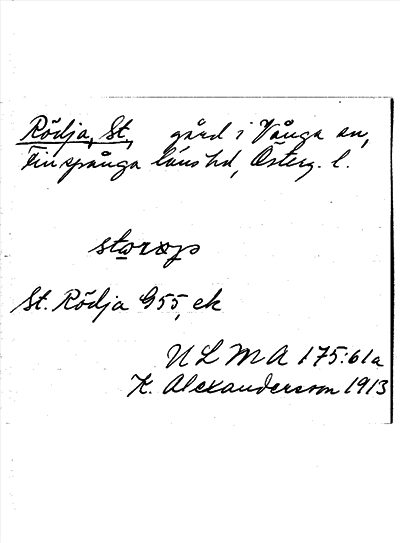 Rödja, St., gård i Vånga sn,
Finspånga läns hd, Österg. l.
St. Rödja G55, ek
ULMA 175:61a
K. Alexanderson 1913